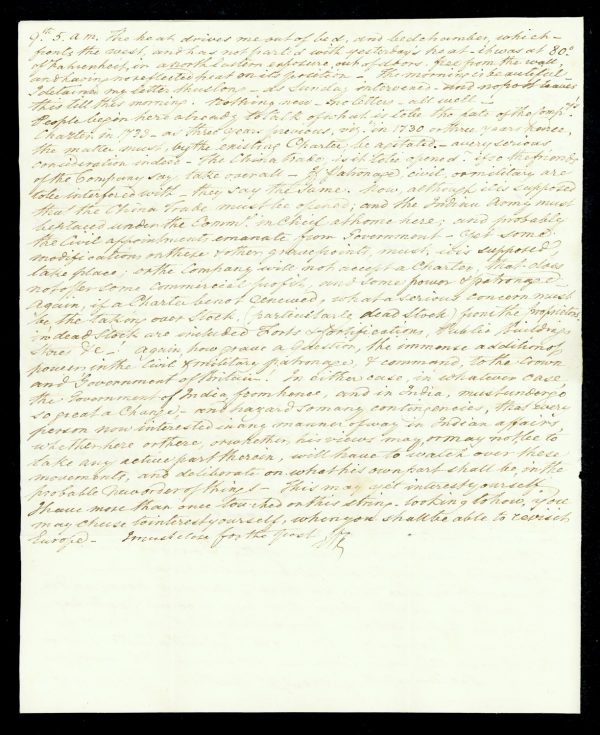 9th. 5. a.m. The heat drives me out of bed, and bedchamber, which
fronts the west, and has not parted with yesterday's heat - it was at 80°
of Fahrenheit, in a north Eastern exposure, out of doors. free from the wall,
and having no reflected heat on its position - The morning is beautiful -
I detained my letter thus long - as Sunday intervened - and no post leaves
this till this morning. Nothing new - No letters - all well -
People begin here already to talk of what is to be the fate of the Comp.ys
Charter, in 1733 - as three years previous, viz. in 1730 or three years hence,
the matter must, by the existing Charter be agitated - a very serious
consideration indeed - The China trade, is it to be opened? if so the friends
of the Company say, take over all - If Patronage, civil, or military are
to be interfered with - they say the same. Now, although it is supposed
that the China Trade must be opened; and the Indian Army must
be placed under the Comm.r in Chief at home here; and probably
the Civil appointments emanate from Government - Yet some
modifications on these & other grave points, must, it is supposed
take place; or the Company will not accept a Charter, that does
not offer some commercial profit, and some power & patronage -
Again, if a Charter be not renewed, what a serious concern must
be the taking over Stock, (particularly dead Stock) from the proprietors
in dead Stock are included Forts & fortifications, Public Buildings
Stores &c - Again, how grave a Question, the immense addition of
power in the Civil & military patronage, & command, to the Crown
and Government of Britain. In either case, in whatever case,
the Government of India from hence, and in India, must undergo
so great a Change - and hazard so many contingencies, that every
person now interested in any manner of way in Indian affairs,
whether here or there, or whether his views may, or may not be to
take any active part therein, will have to watch over these
movements, and deliberate on what his own part shall be, in the
probable new order of things - This may yet interest yourself
I have more than once touched on this string - looking to how, you
may chuse to interest yourself, when you shall be able to revisit
Europe - I must close for the post